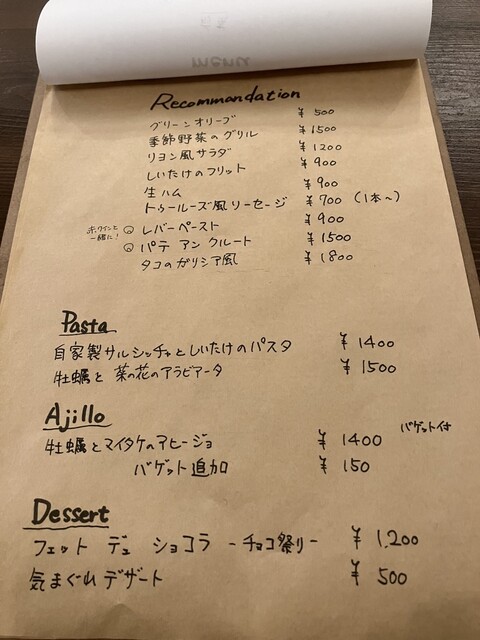 menu
Recommandation
グリーンオリーブ ¥500
季節野菜のグリル ¥1500
リヨン風サラダ ¥1200
しいたけのフリット ¥900
生ハム ¥900
トゥールーズ風ソーセージ ¥700 (1本〜)
赤ワインと一緒に! レバーペースト ¥900
パテ アン クルート ¥1500
タコのガリシア風 ¥1800
Pasta
自家製サルシッチャとしいたけのパスタ ¥1400
牡蠣と菜の花のアラビアータ ¥1500
Ajillo
牡蠣とマイタケのアヒージョ ¥1400 バゲット付
バゲット追加 ¥150
Dessert
フェット デュ ショコラ -チョコ祭り- ¥1,200
気まぐれデザート ¥500